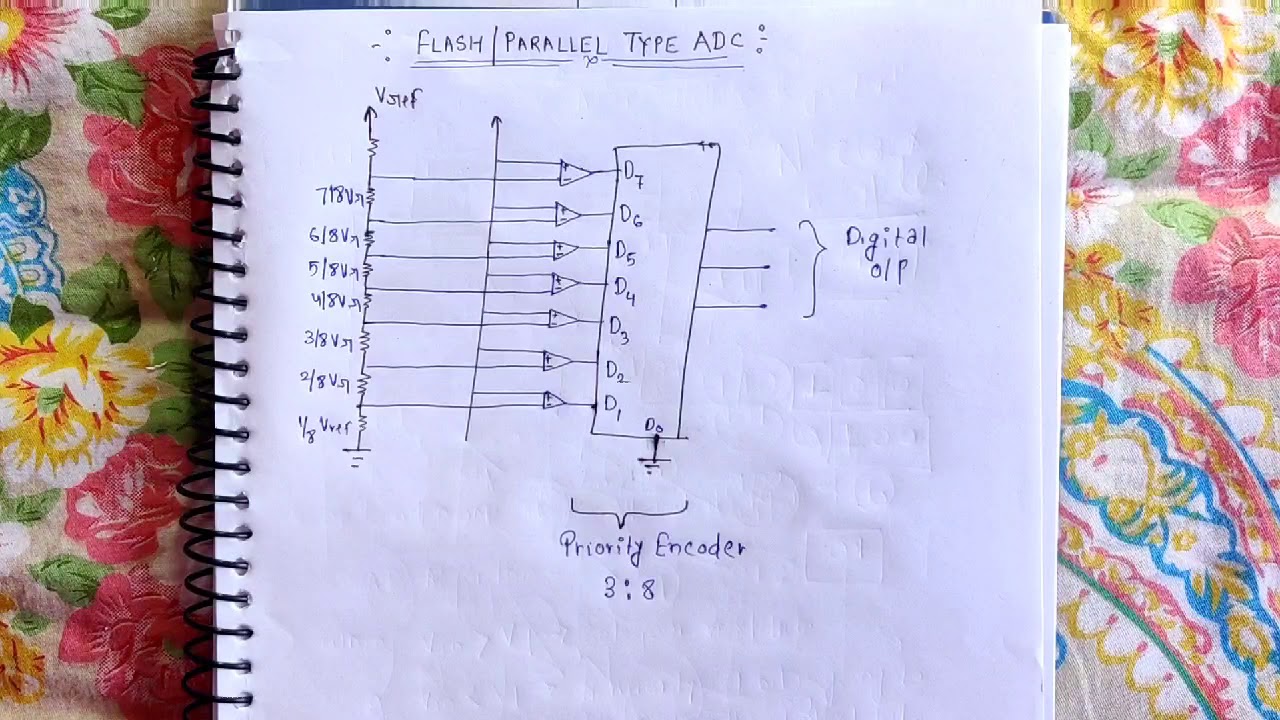 FLASH/PARALLEL TYPE ADC
Vref
7/8Vr
6/8Vr
5/8Vr
4/8Vr
3/8Vr
2/8Vr
1/8 Vref
D7
D6
D5
D4
D3
D2
D1
D0
Digital
O/P
Priority Encoder
3:8